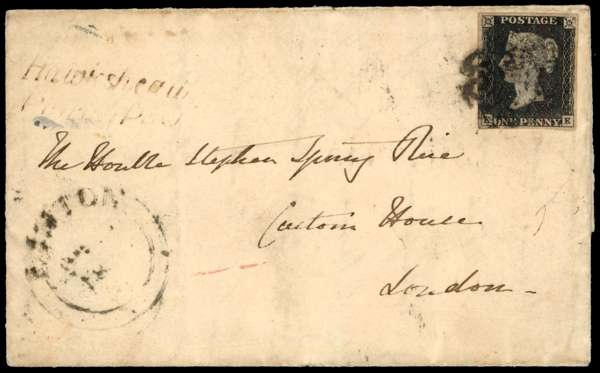 POSTAGE
ONE PENNY
K E
Hawkshead
Penny Post
The Honble Stephen Spring Rice
Custom House
London